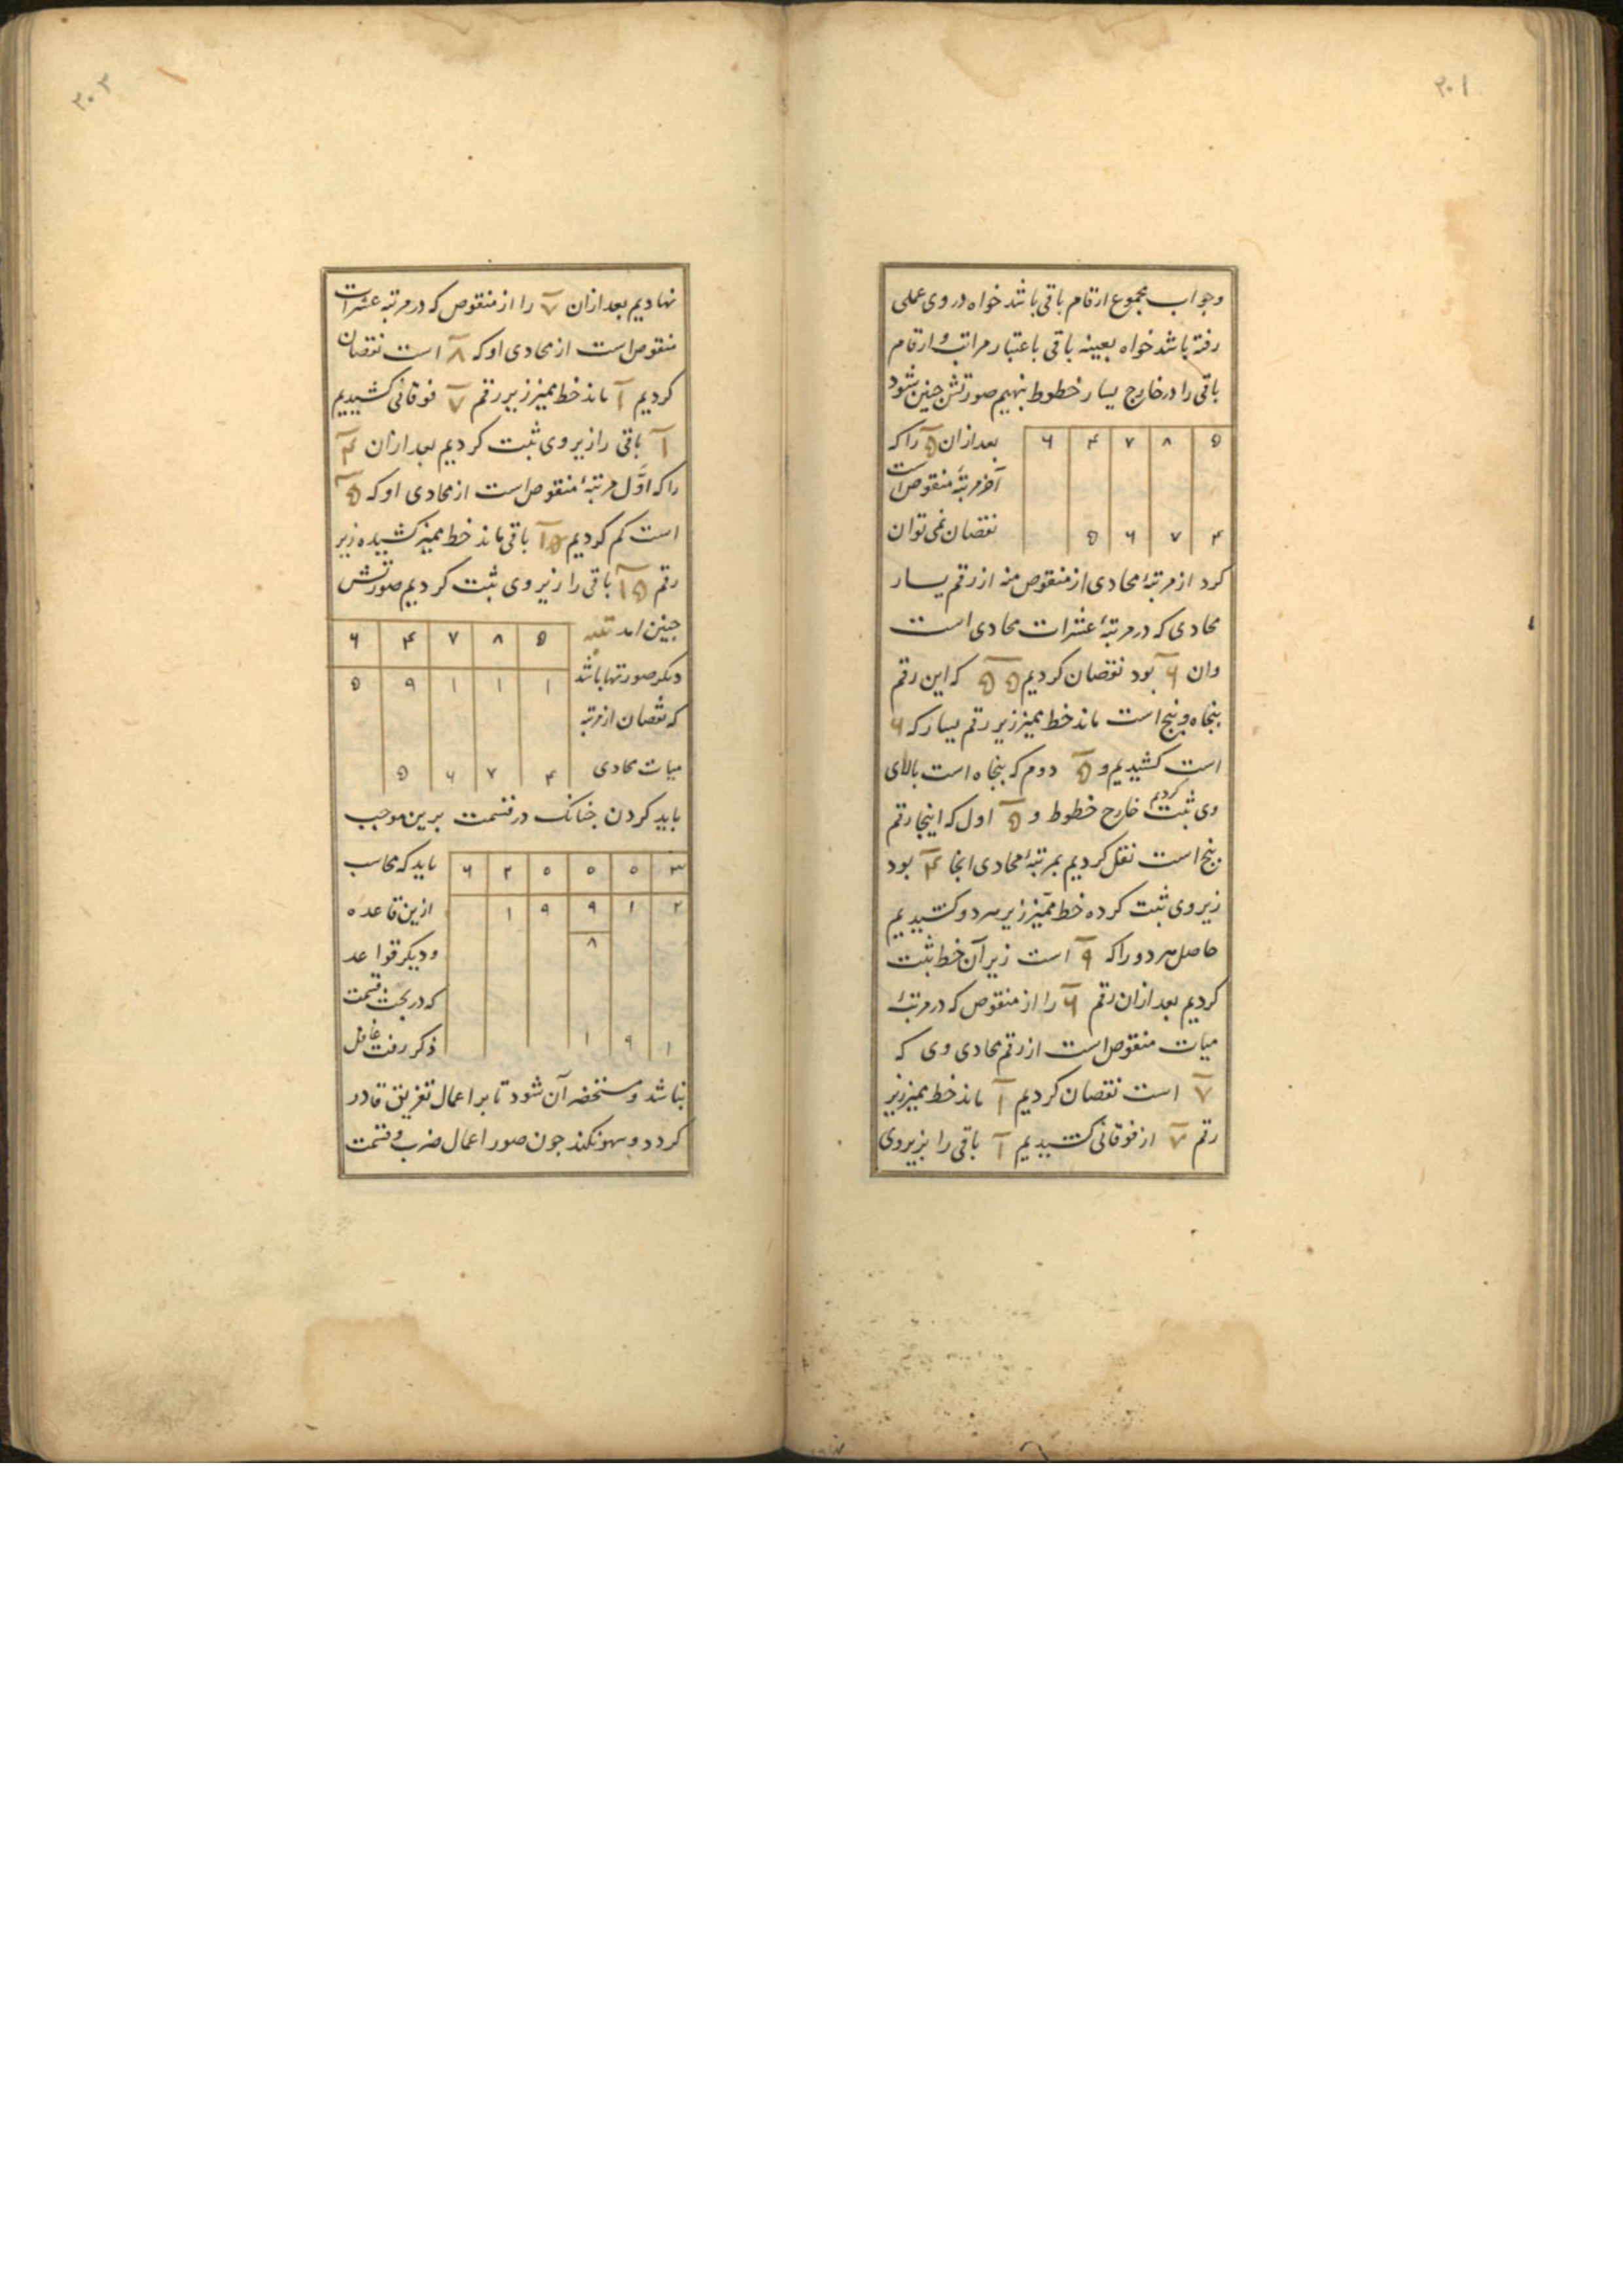 ۲۰۱
وجواب مجموع ارقام باقی باشد خواه در وی عملی
رفته باشد خواه بعینه باقی باعتبار مراتب و ارقام
باقی را در خارج یسار خطوط بنهیم صورتش چنین شود
۶ ۴ ۷ ۸ ۵
بعد ازان ۵ را که
آخر مرتبۀ منقوص است
نقصان نمی توان
۵ ۶ ۷ ۴
کرد از مرتبۀ محادی از منقوص منه از رقم یسار
محادی که در مرتبۀ عشرات محادی است
وان ۶ بود نقصان کردیم ۵۵ که این رقم
پنجاه و پنج است ماند خط ممیز زیر رقم یسار که ۶
است کشیدیم و ۵ دوم که پنجاه است بالای
وی ثبت کردیم خارج خطوط و ۵ اول که اینجا رقم
پنج است نقل کردیم بمرتبۀ محادی انجا ۴ بود
زیر وی ثبت کرده خط ممیّز زیر هر دو کشیدیم
حاصل هر دو را که ۹ است زیر آن خط ثبت
کردیم بعد ازان رقم ۶ را از منقوص که در مرتبۀ
میات منقوص است از رقم محادی وی که
۷ است نقصان کردیم ۱ ماند خط ممیز زیر
رقم ۷ از فوقانی کشیدیم ۱ باقی را بزیر وی
۲۰۲
نهادیم بعد ازان ۷ را از منقوص که در مرتبه عشرات
منقوص است از محادی او که ۸ است نقصان
کردیم ۱ ماند خط ممیز زیر رقم ۷ فوقانی کشیدیم
۱ باقی را زیر وی ثبت کردیم بعد ازان ۴
را که اوّل مرتبۀ منقوص است از محادی او که ۵
است کم کردیم ۱ باقی ماند خط ممیز کشیده زیر
رقم ۵ ۱ باقی را زیر وی ثبت کردیم صورتش
چنین امد تنبیه
۶ ۴ ۷ ۸ ۵
دیکر صورتها باشد
۵ ۹ ۱ ۱ ۱
که نقصان از مرتبه
میات محادی
۵ ۶ ۷ ۴
باید کردن چنانک در قسمت برین موجب
باید که محاسب
۶ ۲ ۰ ۰ ۰ ۳
ازین قاعده
۱ ۹ ۹ ۱ ۲
ودیکر قواعد
۸
که در بحث قسمت
ذکر رفت غافل
۱ ۹ ۱
نباشد و مستحضر آن شود تا بر اعمال تفریق قادر
کردد و سهو نکند چون صور اعمال ضرب و قسمت